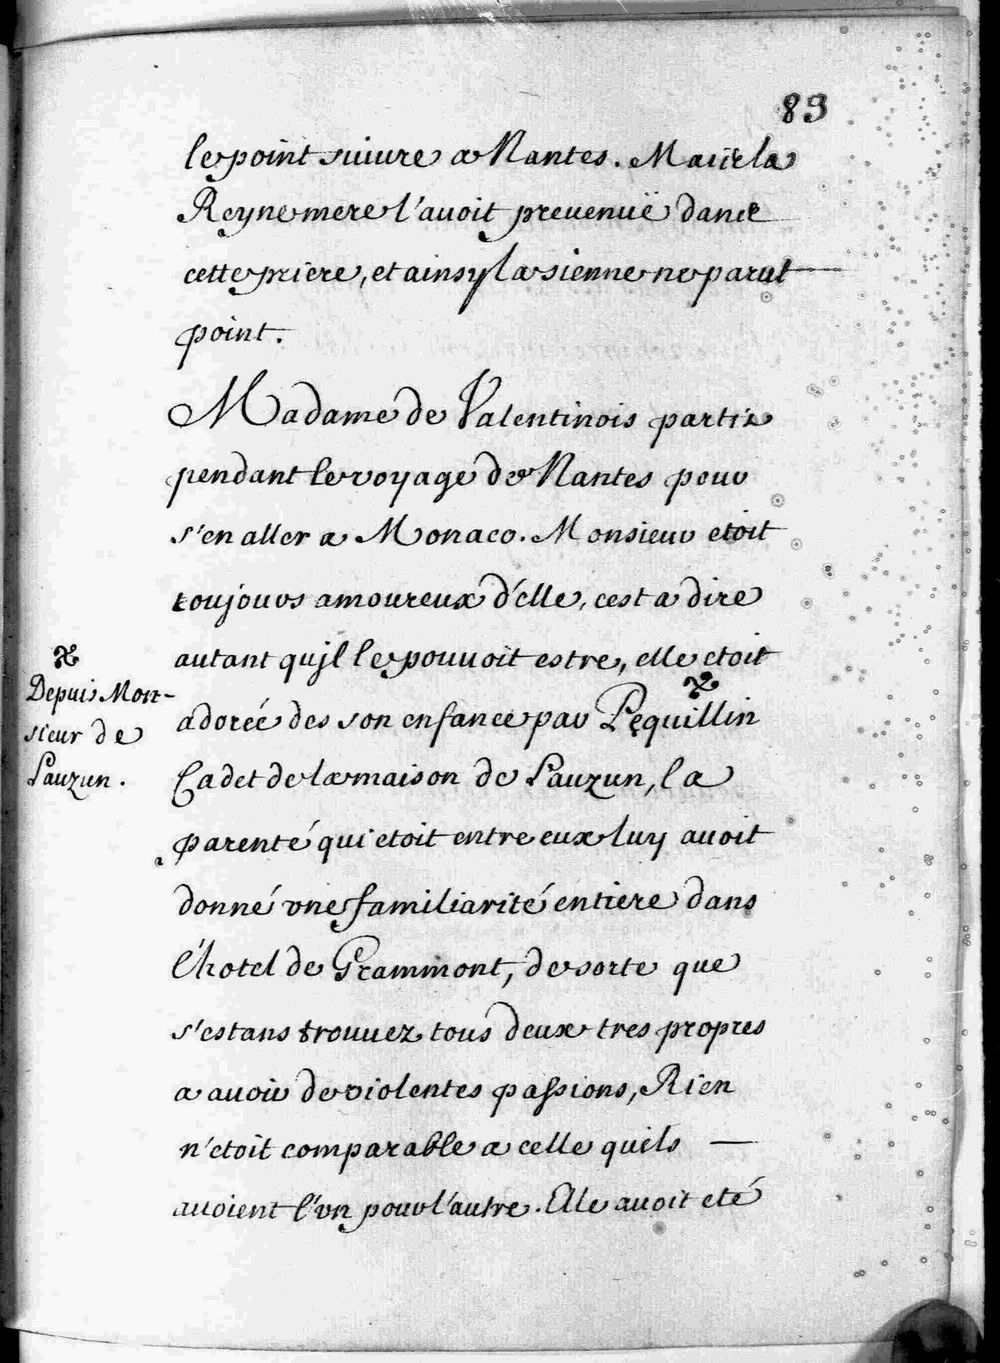 83
le point suiure a Nantes. Mais la
Reyne mere l'auoit preuenuë dans
cette priere, et ainsy la sienne ne parut
point.
Madame de Valentinois partit
pendant le voyage de Nantes pour
s'en aller a Monaco. Monsieur etoit
toujours amoureux d'elle, cest a dire
autant qujl le pouuoit estre, elle etoit
adorée des son enfance par Pequillin
Depuis Mon-
sieur de
Lauzun.
Cadet de la maison de Lauzun, la
parenté qui etoit entre eux luy auoit
donné vne familiarité entiere dans
l'hotel de Grammont, de sorte que
s'estans trouuez tous deux tres propres
a auoir de violentes passions, Rien
n'etoit comparable a celle quils
auoient l'vn pour l'autre. Elle auoit eté